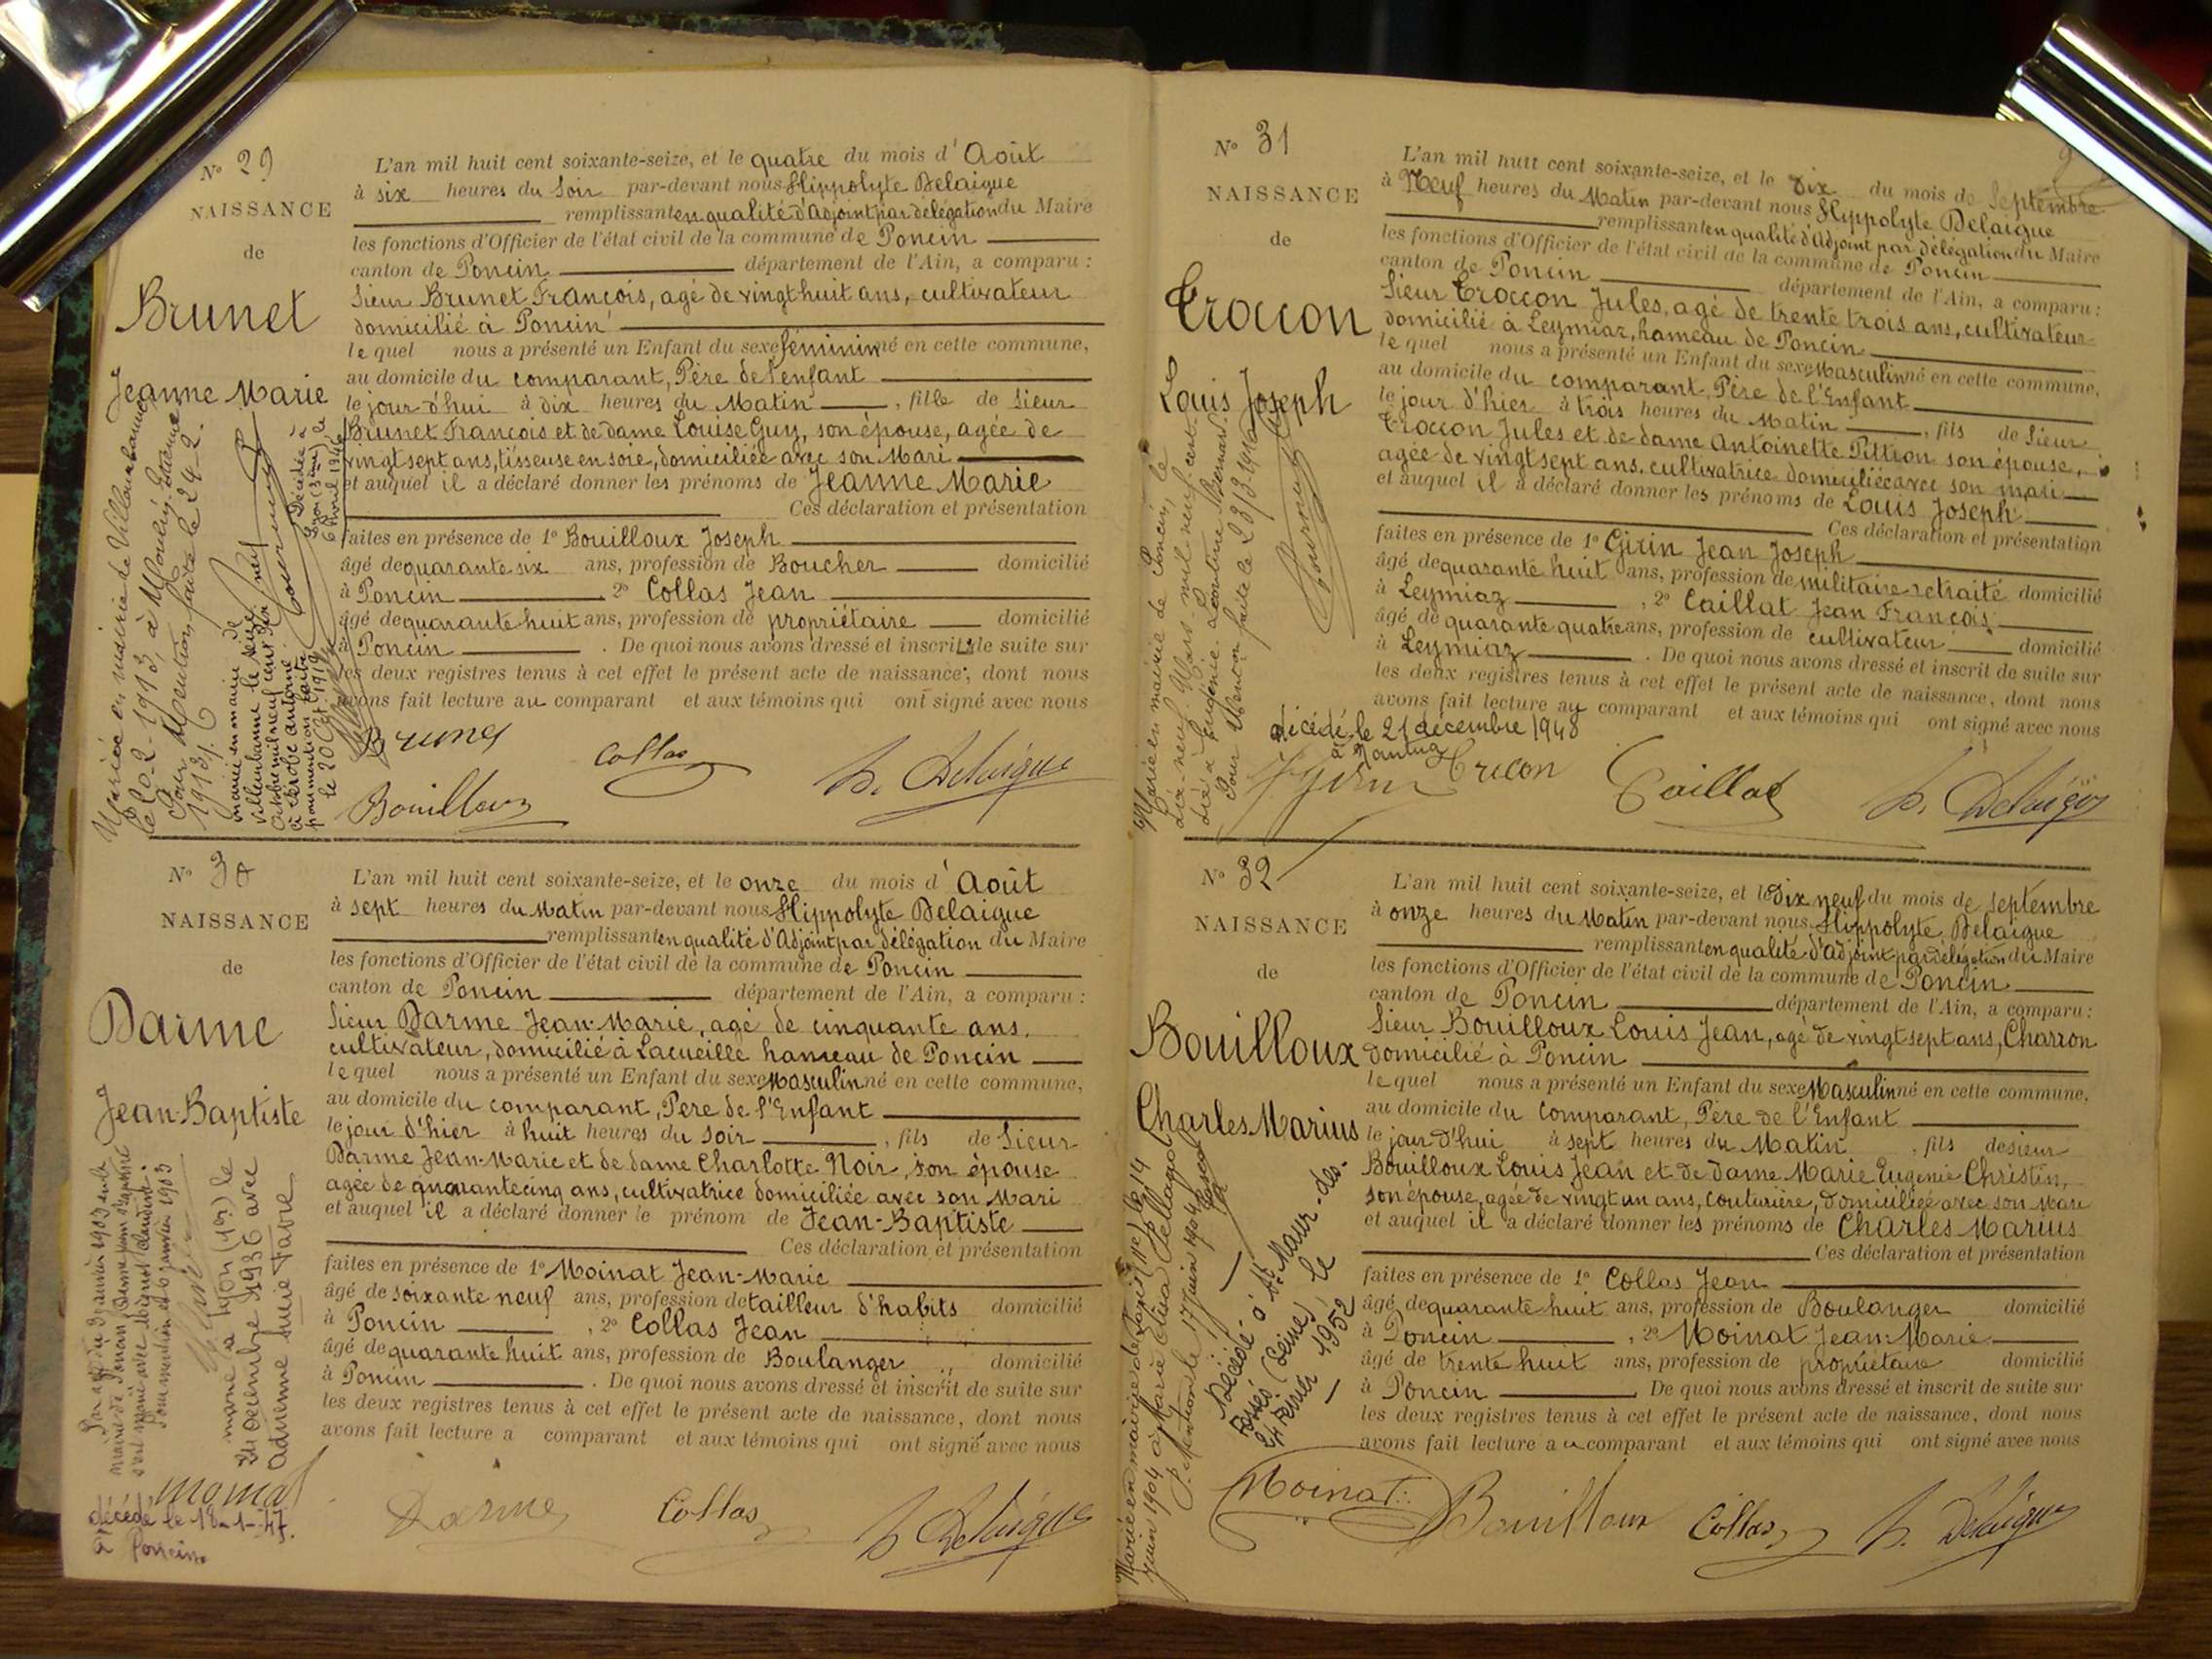 N° 29
NAISSANCE
de
Brunet
Jeanne Marie
L'an mil huit cent soixante-seize, et le quatre du mois d'Août
à six heures du Soir par-devant nous Hippolyte Delaigue
remplissant en qualité d'Adjoint par délégation du Maire
les fonctions d'Officier de l'état civil de la commune de Poncin
canton de Poncin département de l'Ain, a comparu :
Sieur Brunet François, agé de vingt huit ans, cultivateur
domicilié à Poncin
le quel nous a présenté un Enfant du sexe féminin né en cette commune,
au domicile du comparant, Père de l'enfant
le jour d'hui à dix heures du Matin, fille de Sieur
Brunet François et de dame Louise Guy, son épouse, agée de
vingt sept ans, tisseuse en soie, domiciliée avec son Mari
et auquel il a déclaré donner les prénoms de Jeanne Marie
Ces déclaration et présentation
faites en présence de 1° Bouilloux Joseph
âgé de quarante six ans, profession de Boucher domicilié
à Poncin, 2° Collas Jean
âgé de quarante huit ans, profession de propriétaire domicilié
à Poncin. De quoi nous avons dressé et inscrit de suite sur
les deux registres tenus à cet effet le présent acte de naissance, dont nous
avons fait lecture au comparant et aux témoins qui ont signé avec nous
Mariée en mairie de Villeurbanne
le 20-2-1913, à
Pour Mention faite le 24-2-
1913.
marié en mairie de
Villeurbanne le seize
octobre mil neuf cent dix neuf
pour mention faite
le 20 1919
Décédée à
Lyon (3me) le
6 Avril 1946
Brunet
Collas
H. Delaigue
Bouilloux
N° 30
NAISSANCE
de
Darme
Jean-Baptiste
L'an mil huit cent soixante-seize, et le onze du mois d'Août
à sept heures du Matin par-devant nous Hippolyte Delaigue
remplissant en qualité d'Adjoint par délégation du Maire
les fonctions d'Officier de l'état civil de la commune de Poncin
canton de Poncin département de l'Ain, a comparu :
Sieur Darme Jean-Marie, agé de cinquante ans,
cultivateur, domicilié à Lacueille hameau de Poncin
le quel nous a présenté un Enfant du sexe Masculin né en cette commune,
au domicile du comparant, Père de l'Enfant
le jour d'hier à huit heures du Soir, fils de Sieur
Darme Jean-Marie et de dame Charlotte Noir, son épouse
agée de quarante cinq ans, cultivatrice domiciliée avec son Mari
et auquel il a déclaré donner le prénom de Jean-Baptiste
Ces déclaration et présentation
faites en présence de 1° Moinat Jean-Marie
âgé de soixante neuf ans, profession de tailleur d'habits domicilié
à Poncin, 2° Collas Jean
âgé de quarante huit ans, profession de Boulanger domicilié
à Poncin. De quoi nous avons dressé et inscrit de suite sur
les deux registres tenus à cet effet le présent acte de naissance, dont nous
avons fait lecture a comparant et aux témoins qui ont signé avec nous
Par acte du 3 janvier 1903 en la
mairie de Poncin Darme Jean Baptiste
s'est marié avec
Pour mention le 6 janvier 1903
marié à Lyon (1er) le
24 Décembre 1936 avec
Adrienne Lucie Favre
Moinat
décédé le 18-1-47.
à Poncin
Darme
Collas
H. Delaigue
N° 31
NAISSANCE
de
Troccon
Louis Joseph
L'an mil huit cent soixante-seize, et le Dix du mois de Septembre
à Neuf heures du Matin par-devant nous Hippolyte Delaigue
remplissant en qualité d'Adjoint par délégation du Maire
les fonctions d'Officier de l'état civil de la commune de Poncin
canton de Poncin département de l'Ain, a comparu :
Sieur Troccon Jules, agé de trente trois ans, cultivateur
domicilié à Leymiaz, hameau de Poncin
le quel nous a présenté un Enfant du sexe Masculin né en cette commune,
au domicile du comparant, Père de l'Enfant
le jour d'hier à trois heures du Matin, fils de Sieur
Troccon Jules et de dame Antoinette Pittion son épouse,
agée de vingt sept ans, cultivatrice domiciliée avec son mari
et auquel il a déclaré donner les prénoms de Louis Joseph
Ces déclaration et présentation
faites en présence de 1° Girin Jean Joseph
âgé de quarante huit ans, profession de militaire retraité domicilié
à Leymiaz, 2° Caillat Jean François
âgé de quarante quatre ans, profession de cultivateur domicilié
à Leymiaz. De quoi nous avons dressé et inscrit de suite sur
les deux registres tenus à cet effet le présent acte de naissance, dont nous
avons fait lecture au comparant et aux témoins qui ont signé avec nous
Marié en mairie de Poncin, le
dix-neuf Mars mil neuf cent
dix à Eugénie Léontine Bernard.
Pour Mention faite le 23/3-1910
décédé le 21 décembre 1948
à Nantua
Girin
Trocon
Caillat
H. Delaigue
N° 32
NAISSANCE
de
Bouilloux
Charles Marius
L'an mil huit cent soixante-seize, et le Dix neuf du mois de Septembre
à onze heures du Matin par-devant nous Hippolyte Delaigue
remplissant en qualité d'Adjoint par délégation du Maire
les fonctions d'Officier de l'état civil de la commune de Poncin
canton de Poncin département de l'Ain, a comparu :
Sieur Bouilloux Louis Jean, agé de vingt sept ans, Charron
domicilié à Poncin
le quel nous a présenté un Enfant du sexe Masculin né en cette commune,
au domicile du comparant, Père de l'Enfant
le jour d'hui à sept heures du Matin, fils de sieur
Bouilloux Louis Jean et de dame Marie Eugenie Christin,
son épouse, agée de vingt un ans, couturière, domiciliée avec son Mari
et auquel il a déclaré donner les prénoms de Charles Marius
Ces déclaration et présentation
faites en présence de 1° Collas Jean
âgé de quarante huit ans, profession de Boulanger domicilié
à Poncin, 2° Moinat Jean-Marie
âgé de trente huit ans, profession de propriétaire domicilié
à Poncin. De quoi nous avons dressé et inscrit de suite sur
les deux registres tenus à cet effet le présent acte de naissance, dont nous
avons fait lecture au comparant et aux témoins qui ont signé avec nous
Marié en mairie de Paris, 11e, le 14
juin 1904 à Marie Elisa
P. Mention le 17 juin 1904
Décédé à St Maur-des-
Fossés (Seine) le
24 Février 1952
Moinat
Bouilloux
Collas
H. Delaigue